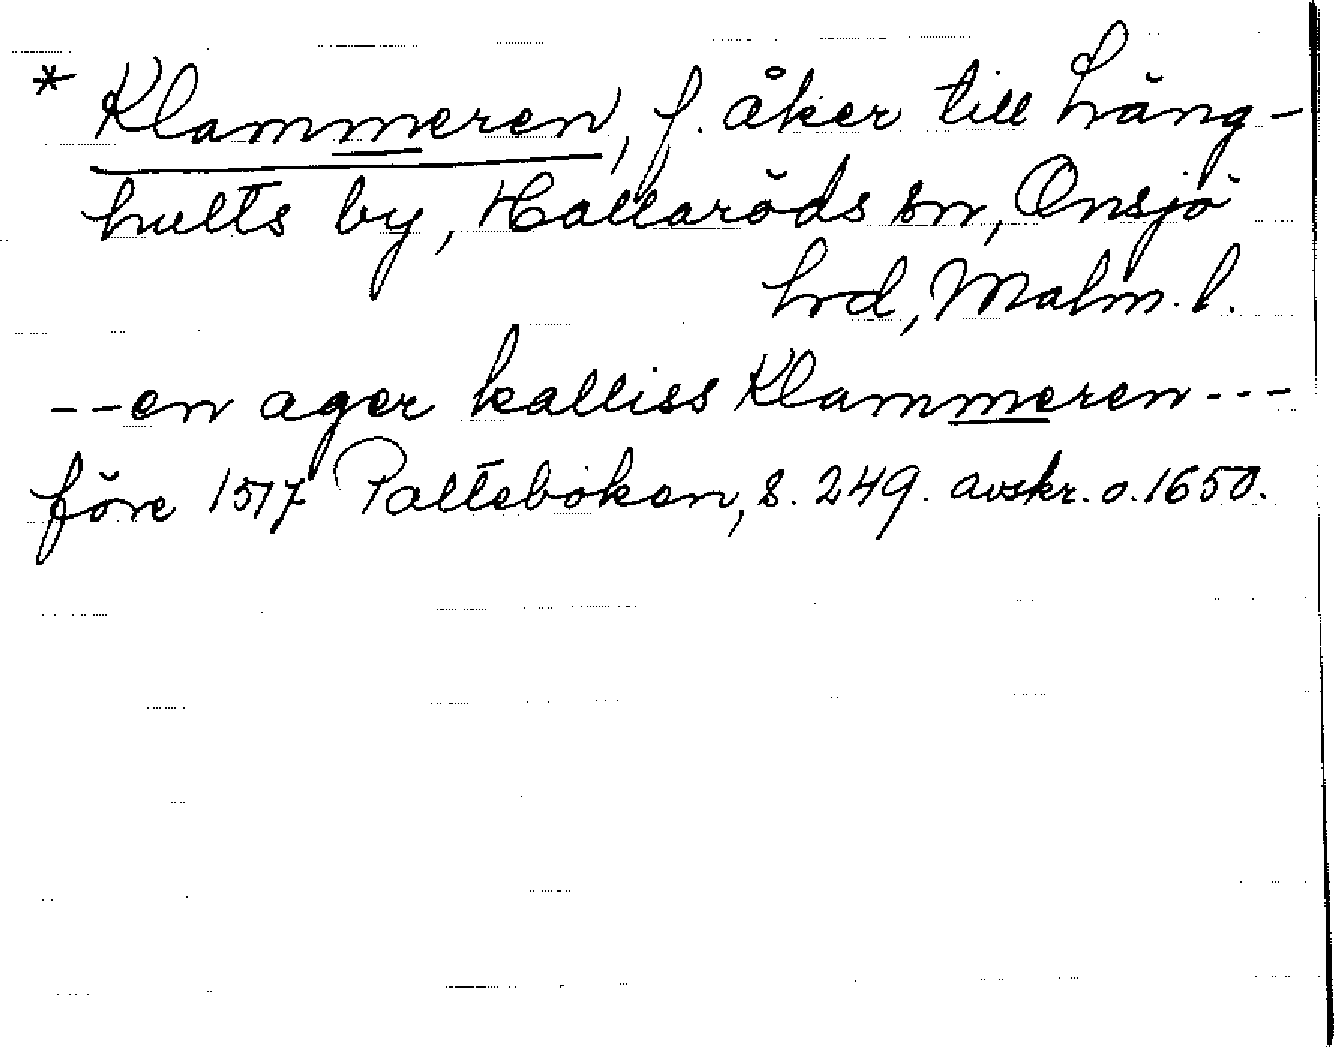 * Klammeren, f. åker till Häng-
hults by, Hallaröds sn, Onsjö
hrd, Malm. l.
--en ager kalliss Klammeren---
före 1517 Palteboken, s. 249. avskr. o. 1650.